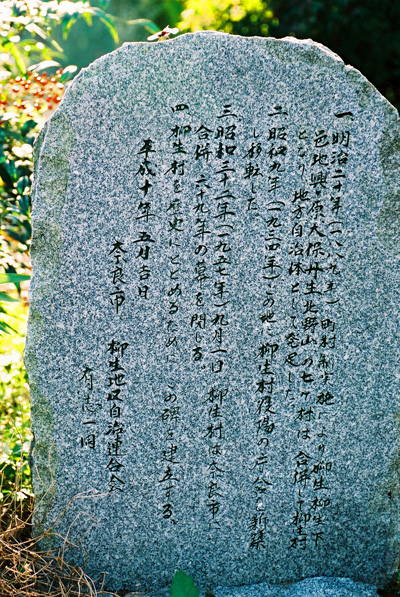 一 明治二十二年(一八八九年)町村制実施により柳生 柳生下
邑地 興ヶ原 大保 丹生 北野山の七ヶ村は 合併して柳生村
となり 地方自治体として発足した。
二 昭和九年(一九三四年)この地に 柳生村役場の庁舎を新築
し移転した。
三 昭和三十二年(一九五七年)九月一日 柳生村は奈良市に
合併 六十九年の幕を閉じる。
四 柳生村を歴史にとどめるために この碑を建立する。
平成十年 五月吉日
奈良市 柳生地区自治連合会
有志一同